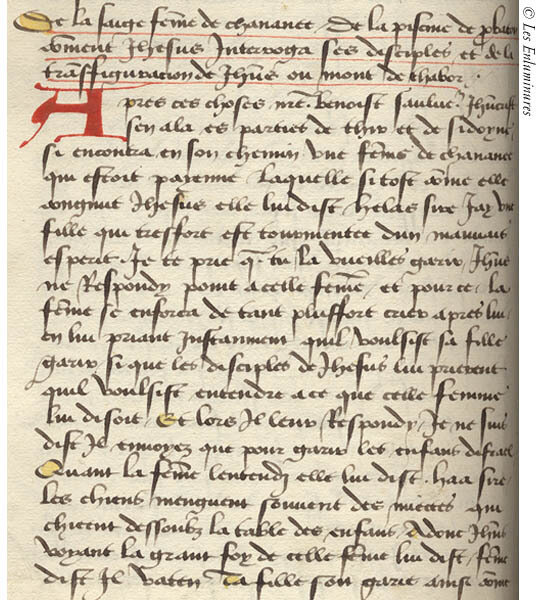 De la saige fẽme de chananee. De la piscine de
cõment Ihesus Interroga ses disciples, et de la
trãsffiguracion de Ihũs ou mont de thabor.
Apres ces choses nr̃e benoist sauluer Ihũcrist
sen ala es parties de thir et de sidoyne
si encontra en son chemin vne fẽme de chananee
qui estoit paienne. Laquelle si tost cõme elle
congnut Ihesus elle lui dist. helas sire Jay vne
fille qui tresfort est tourmentee dun mauuais
esperit. Je te prie q̃ tu la vueilles garir. Ihũs
ne Respondy point a celle fẽme, et pour ce la
fẽme se efforca de tant plusfort crier apres lui
en lui priant Instanment quil voulsist sa fille
garir, si que les disciples de Ihesus lui prierent
quil voulsist entendre a ce que celle femme
lui disoit. Et lors Il leur Respondy, Je ne suis
dist Il enuoyez que pour garir les enfans disrael.
Quant la fẽme lentendy elle lui dist. haa sire
Les chiens menguent souuent des miettes qui
chieent dessoubz la table des enfans. Adonc Ihũs
voyant la grant foy de celle fẽme lui dist, fẽme
dist Il vaten Ta fille soit garie ainsi cõme
© Les Enluminures